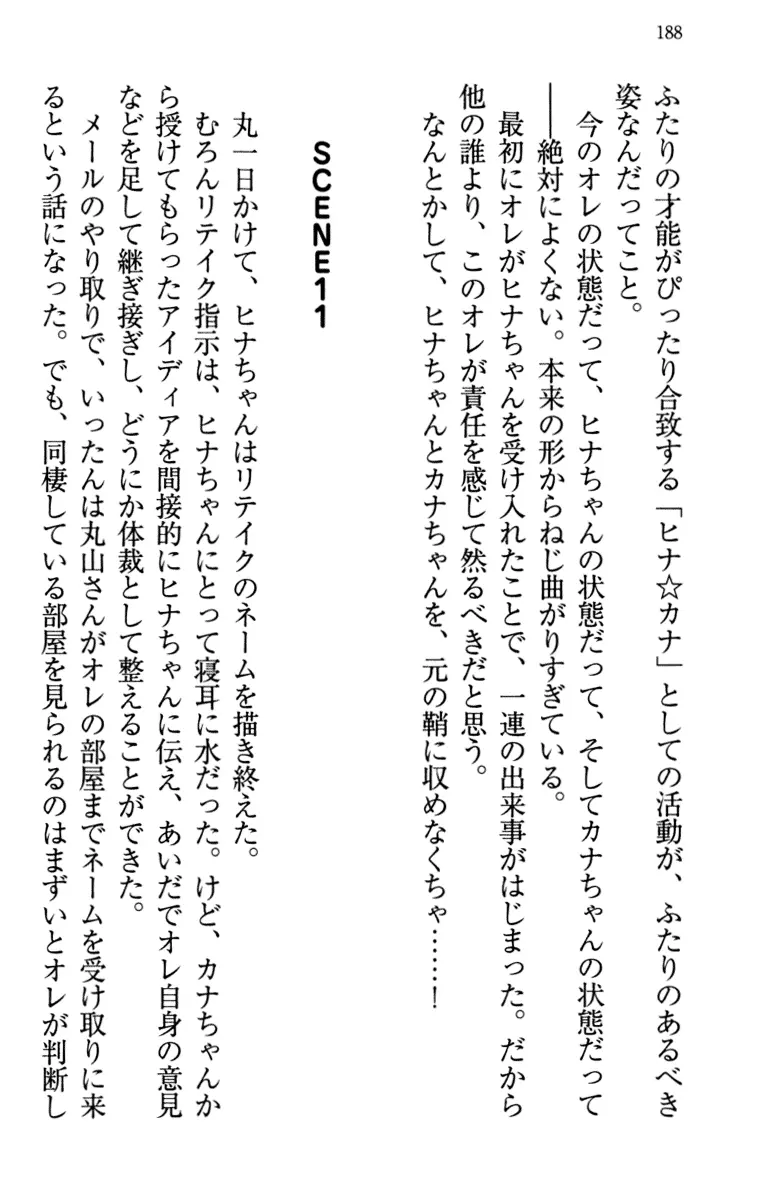 188
ふたりの才能がぴったり合致する「ヒナ☆カナ」としての活動が、ふたりのあるべき
姿なんだってこと。
今のオレの状態だって、ヒナちゃんの状態だって、そしてカナちゃんの状態だって
――絶対によくない。本来の形からねじ曲がりすぎている。
最初にオレがヒナちゃんを受け入れたことで、一連の出来事がはじまった。だから
他の誰より、このオレが責任を感じて然るべきだと思う。
なんとかして、ヒナちゃんとカナちゃんを、元の鞘に収めなくちゃ……！
SCENE11
丸一日かけて、ヒナちゃんはリテイクのネームを描き終えた。
むろんリテイク指示は、ヒナちゃんにとって寝耳に水だった。けど、カナちゃんか
ら授けてもらったアイディアを間接的にヒナちゃんに伝え、あいだでオレ自身の意見
などを足して継ぎ接ぎし、どうにか体裁として整えることができた。
メールのやり取りで、いったんは丸山さんがオレの部屋までネームを受け取りに来
るという話になった。でも、同棲している部屋を見られるのはまずいとオレが判断し